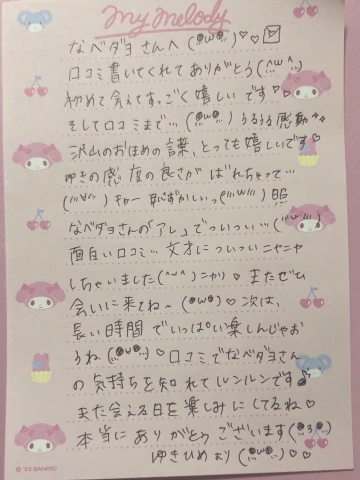 My Melody
なベダヨさんへ (◉ω◉)♡♡
口コミ書いてくれてありがとう(^ω^)
初めて会えてすっごく嬉しいです♡
そして口コミまで…(◉ω◉)うるうる感動
沢山のおほめの言葉、とっても嬉しいです♡
ゆきの感度の良さがばれちゃって…
(///∀///)キャー 恥ずかしいっ(///ω///)照
なベダヨさんの「アレ」でついつい…(///ω///)
面白い口コミ…文才についついニヤニヤ
しちゃいました(^ω^)ニヤリ♡ またぜひ
会いに来てね〜(◉ω◉)♡次は、
長い時間でいっぱい楽しんじゃお
うね(◉ω◉)♡口コミでなベダヨさん
の気持ちを知れてルンルンです♪
また会える日を楽しみにしてるね♡
本当にありがとうございます(◉3◉)
ゆきひめより(◉ω◉)♡♡
SANRIO